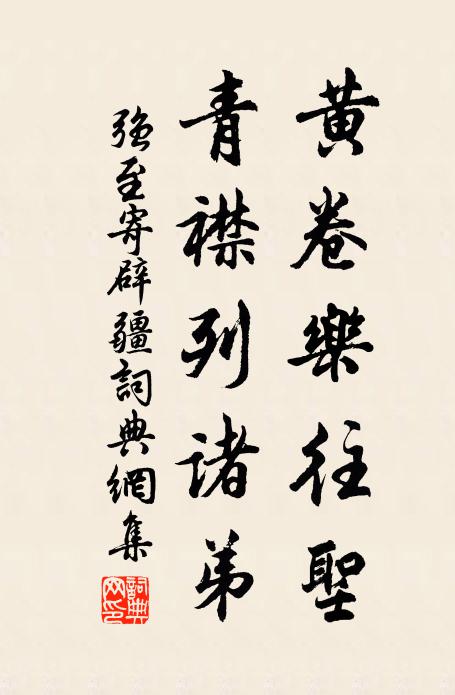 黄卷樂往聖
青襟列诸弟
強至寄辟疆詞典網集
詞典网印